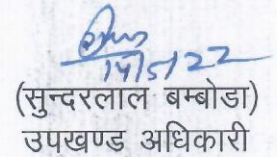 14/5/22
(सुन्दरलाल बम्बोडा)
उपखण्ड अधिकारी